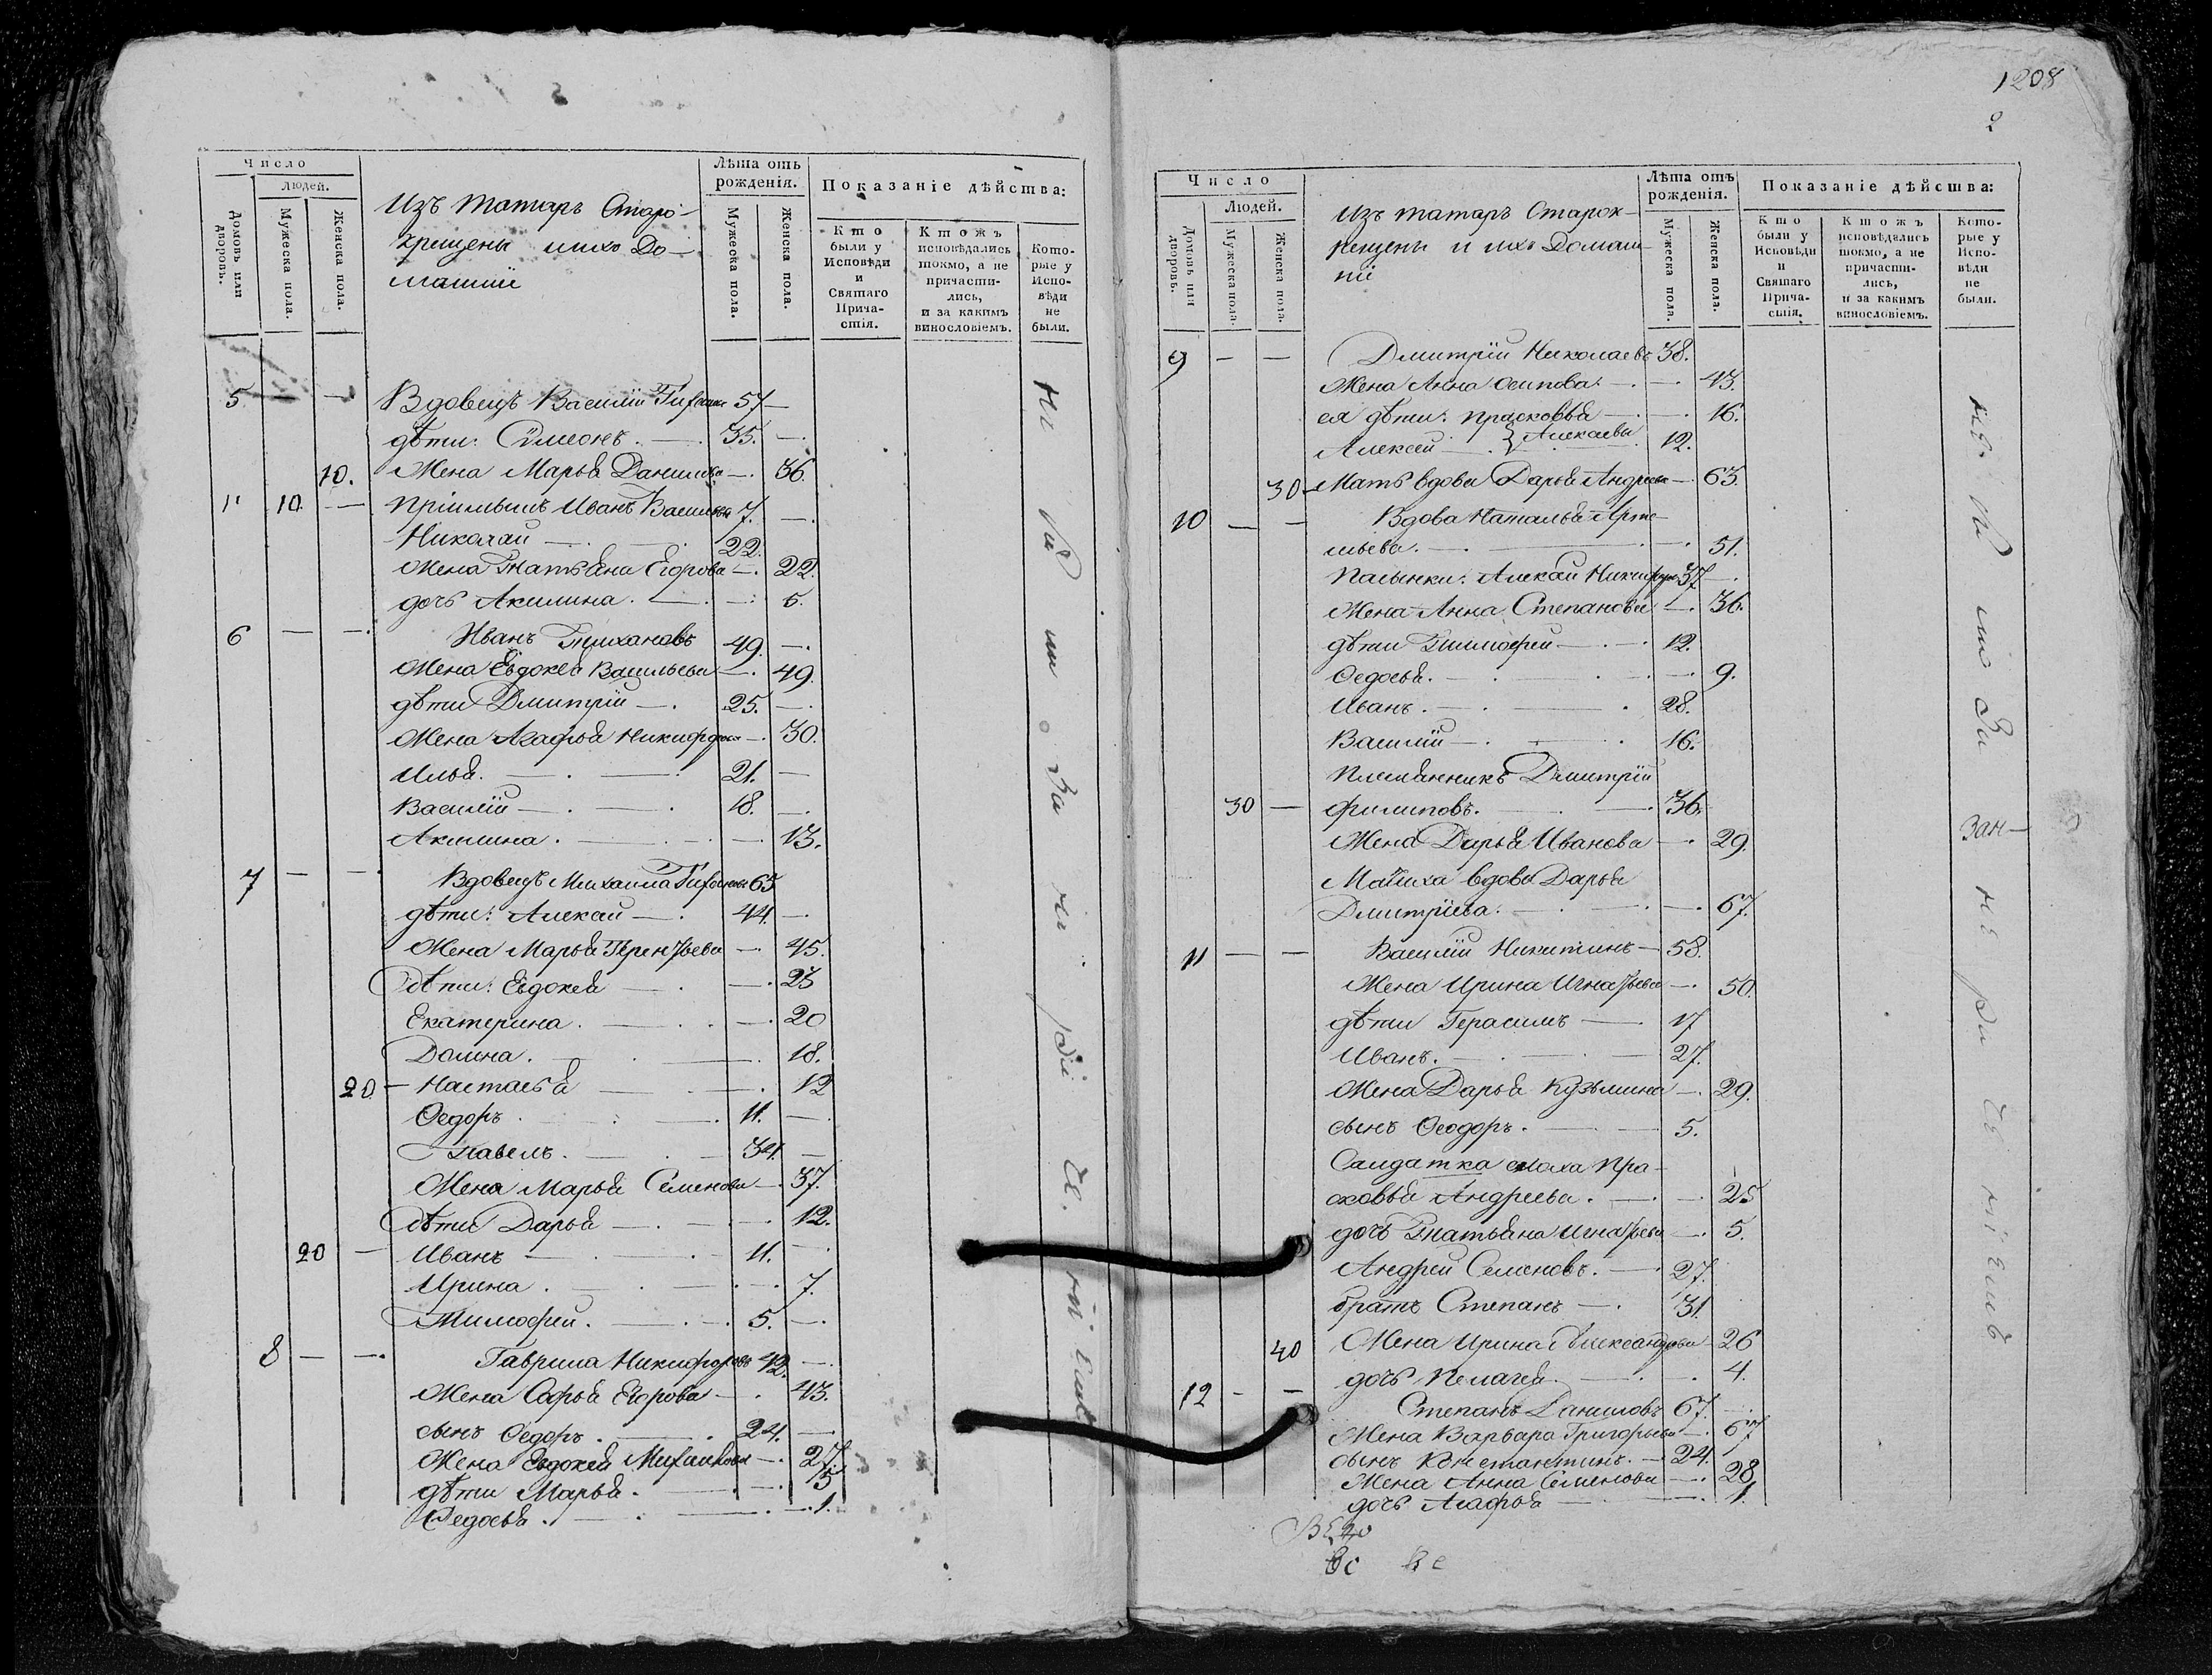 Число
людей.
Домовъ или дворовъ.
Мужеска пола.
Женска пола.
Изъ татаръ Старо-
крещены и ихъ До-
машнии
Лѣта отъ
рожденія.
Мужеска пола.
Женска пола.
Показаніе дѣйства:
Кто
были у
Исповѣди
и
Святаго
Прича-
стія.
Ктожъ
исповѣдались
токмо, а не
причасти-
лись,
и за какимъ
винословіемъ.
Кото-
рые у
Испо-
вѣди
не
были.
5 — — Вдовецъ Василій 57 —
дѣти: Сѷмеонъ. — 35. —
10. Жена Марья Данилова — 36.
11 10. — Иванъ Васильевъ 7. —
Николай — 22.
Жена Татьяна Егорова — 22.
дочь Акилина. — 5.
6 — — Иванъ Тихановъ 49. —
Жена Евдокея Васильева — 49.
дѣти Дмитрій — 25. —
Жена Агафья Никифорова — 30.
Илья. — 21. —
Василій — 18. —
Акилина. — 13.
7 — — Вдовецъ Михаила 65
дѣти: Алекѣй — 44. —
Жена Марья Терентьева — 45.
Дѣти: Евдокея — 23
Екатерина. — 20
Домна. — 18.
20 — Настасья — 12
Ѳедоръ — 11. —
Павелъ. — 34. —
Жена Марья Семенова — 37.
Дѣти Дарья — 12.
20 — Иванъ — 11. —
Ирина. — 7.
Тимофей. — 5. —
8 — — Гаврила Никифоровъ 42. —
Жена Софья Егорова — 43.
сынъ Ѳедоръ. — 24. —
Жена Евдокея Михайлова — 27.
дѣти Марья. — 3
Ѳедосья. — 1.
1208
2
Число
Людей.
Домовъ или дворовъ.
Мужеска пола.
Женска пола.
Изъ татаръ Старок-
рещенъ и ихъ Домаш-
ніе
Лѣта отъ
рожденія.
Мужеска пола.
Женска пола.
Показаніе дѣйства:
Кто
были у
Исповѣди
и
Святаго
Прича-
стія.
Ктожъ
исповѣдались
токмо, а не
причасти-
лись,
и за какимъ
винословіемъ.
Кото-
рые у
Испо-
вѣди
не
были.
9 — — Дмитрій Николаевъ 38.
Жена Анна Осипова. — 43.
ея дѣти: Прасковья — 16.
Алексей — 12.
30 — Мать вдова Дарья Андреева — 63.
10 — — Вдова Наталья Арте-
мьева. — 51.
Пасынки: Никифоровъ 37 —
Жена Анна Степанова — 36.
дѣти Тимофей — 12.
Ѳедосья. — 9.
Иванъ. — 28.
Василій — 16.
Племянникъ Дмитрій
30 — Филиповъ. — 36.
Жена Дарья Иванова — 29.
Мачиха вдова Дарья
Дмитріева. — 67.
11 — — Василій Никитинъ — 58.
Жена Ирина Игнатьева — 50.
дѣти Герасимъ — 17
Иванъ. — 27.
Жена Дарья Кузьмина — 29.
сынъ Ѳеодоръ. — 5.
Салдатка сноха Пра-
сковья Андреева. — 25
дочь Татьяна Игнатьева — 5.
Андрей Семеновъ. — 27.
братъ Степанъ — 31.
40 Жена Ирина Александрова — 26
дочь Пелагея. — 4.
12 — — Степанъ Даниловъ 67. —
Жена Варвара Григорьева — 67
сынъ Константинъ. — 24.
Жена Анна Семенова — 28.
дочь Агафья — 1.